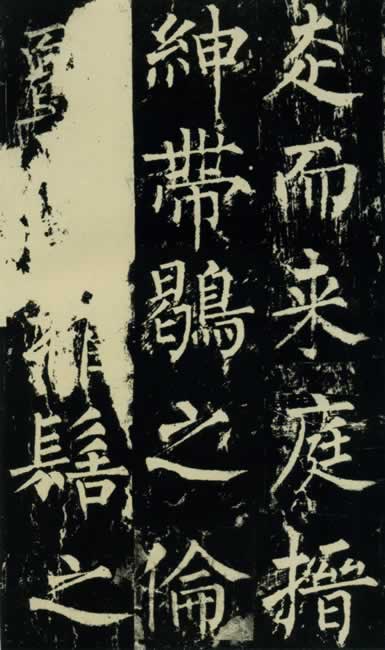 走而来庭搢
紳帶鶡之倫
椎髻之